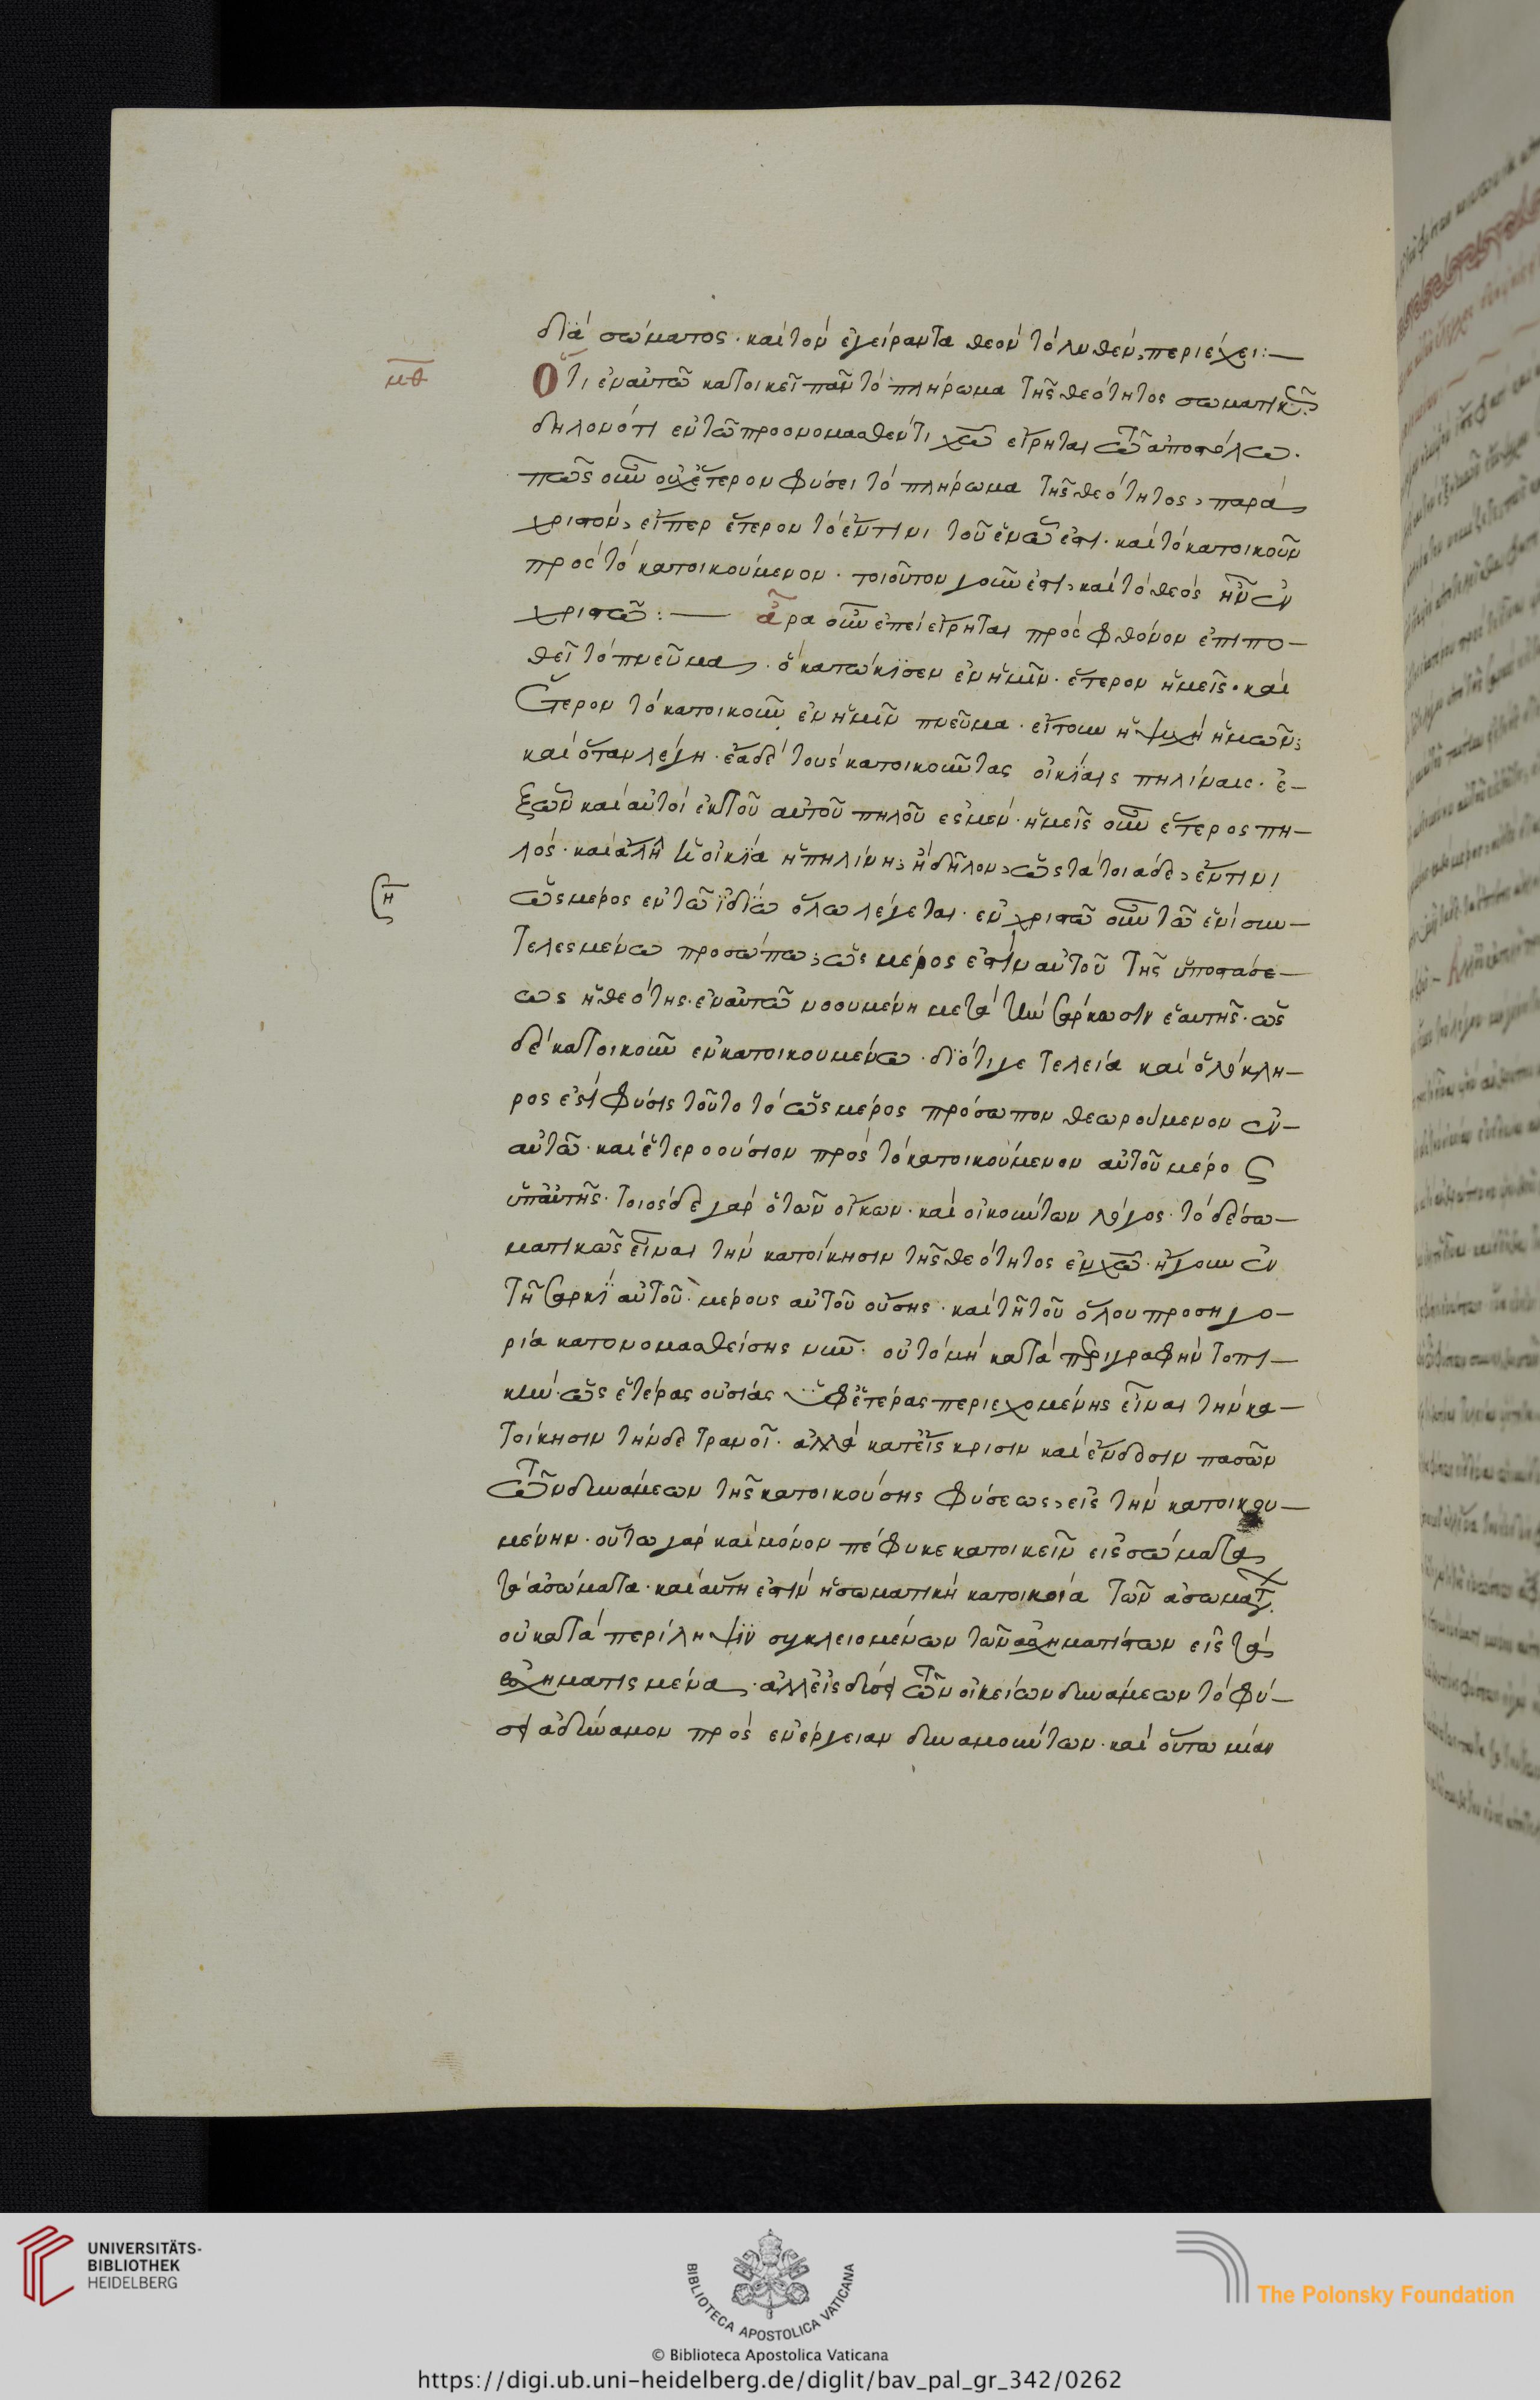 διὰ σώματος. καὶ τὸν ἐγείραντα θεὸν τὸ λυθὲν, περιέχει:—
μθ
Ὅτι ἐν αὐτῶ κατοικεῖ πᾶν τὸ πλήρωμα τῆς θεότητος σωματικῶς.
δηλονότι ἐν τῶ προονομασθέντι χω εἴρηται τῶ ἀποστόλω.
πῶς οὖν οὐχ ἕτερον φύσει τὸ πλήρωμα τῆς θεότητος, παρὰ
χριστὸν, εἴπερ ἕτερον τὸ ἔν τινι τοῦ ἐν ὧ ἐστι. καὶ τὸ κατοικοῦν
πρὸς τὸ κατοικούμενον. τοιοῦτον γοῦν ἐστι, καὶ τὸ θεὸς ἦν ἐν
χριστῶ:— ἆρα οὖν ἐπεὶ εἴρηται πρὸς φθόνον ἐπιπο—
θεῖ τὸ πνεῦμα. ὃ κατώκισεν ἐν ἡμῖν. ἕτερον ἡμεῖς. καὶ
ἕτερον τὸ κατοικοῦν ἐν ἡμῖν πνεῦμα. εἴτουν ἡ ψυχὴ ἡμῶν;
καὶ ὅταν λέγη. ἔα δὲ τοὺς κατοικοῦντας οἰκίας πηλίνας. ἐ—
ξ ὧν καὶ αὐτοὶ ἐκ τοῦ αὐτοῦ πηλοῦ ἐσμέν. ἡμεῖς οὖν ἕτερος πη—
λός. καὶ ἄλλη ἡ οἰκία ἡ πηλίνη; ἢ δῆλον, ὡς τὰ τοιάδε, ἔν τινι
ὡς μέρος ἐν τῶ ἰδίω ὅλω λέγεται. ἐν χριστῶ οὖν τῶ ἑνὶ συν—
τελεσμένω προσώπω, ὡς μέρος ἐστὶν αὐτοῦ τῆς ὑποστάσε—
ως ἡ θεότης. ἐν αὐτῶ νοουμένη μετὰ τὴν σάρκωσιν ἑαυτῆς. ὡς
δὲ κατοικοῦν ἐν κατοικουμένω. διότι γε τελεία καὶ ὁλόκλη—
ρος ἐστὶ φύσις τοῦτο τὸ ὡς μέρος πρόσωπον θεωρούμενον ἐν—
αὐτῶ. καὶ ἑτεροούσιον πρὸς τὸ κατοικούμενον αὐτοῦ μέρος
ὑπ' αὐτῆς. τοιόσδε γὰρ ὁ τῶν οἴκων. καὶ οἰκούντων λόγος. τὸ δὲ σω—
ματικῶς εἶναι τὴν κατοίκησιν τῆς θεότητος ἐν χω. ἤγουν ἐν
τῆ σαρκὶ αὐτοῦ. μέρους αὐτοῦ οὔσης. καὶ τῆ τοῦ ὅλου προσηγο—
ρία κατονομασθείσης νῦν. οὐ τὸ μὴ κατὰ περιγραφὴν τοπι—
κὴν. ὡς ἑτέρας οὐσίας ὑφ' ἑτέρας περιεχομένης εἶναι τὴν κα—
τοίκησιν τήνδε τρανοῖ. ἀλλὰ κατ' εἴσκρισιν καὶ ἔνδοσιν πασῶν
τῶν δυνάμεων τῆς κατοικούσης φύσεως, εἰς τὴν κατοικου—
μένην. οὕτω γὰρ καὶ μόνον πέφυκε κατοικεῖν εἰς σώματα
τὰ ἀσώματα. καὶ αὕτη ἐστὶν ἡ σωματικὴ κατοικία τῶν ἀσωμάτων.
οὐ κατὰ περίληψιν συγκλειομένων τῶν ἀσχηματίστων εἰς τὰ
ἐσχηματισμένα. ἀλλ' εἰσδύσει τῶν οἰκείων δυνάμεων τὸ φύ—
σει ἀδύναμον πρὸς ἐνέργειαν δυναμούντων. καὶ οὕτω μίαν
UNIVERSITÄTS-
BIBLIOTHEK
HEIDELBERG
BIBLIOTECA APOSTOLICA VATICANA
The Polonsky Foundation
© Biblioteca Apostolica Vaticana
https://digi.ub.uni-heidelberg.de/diglit/bav_pal_gr_342/0262